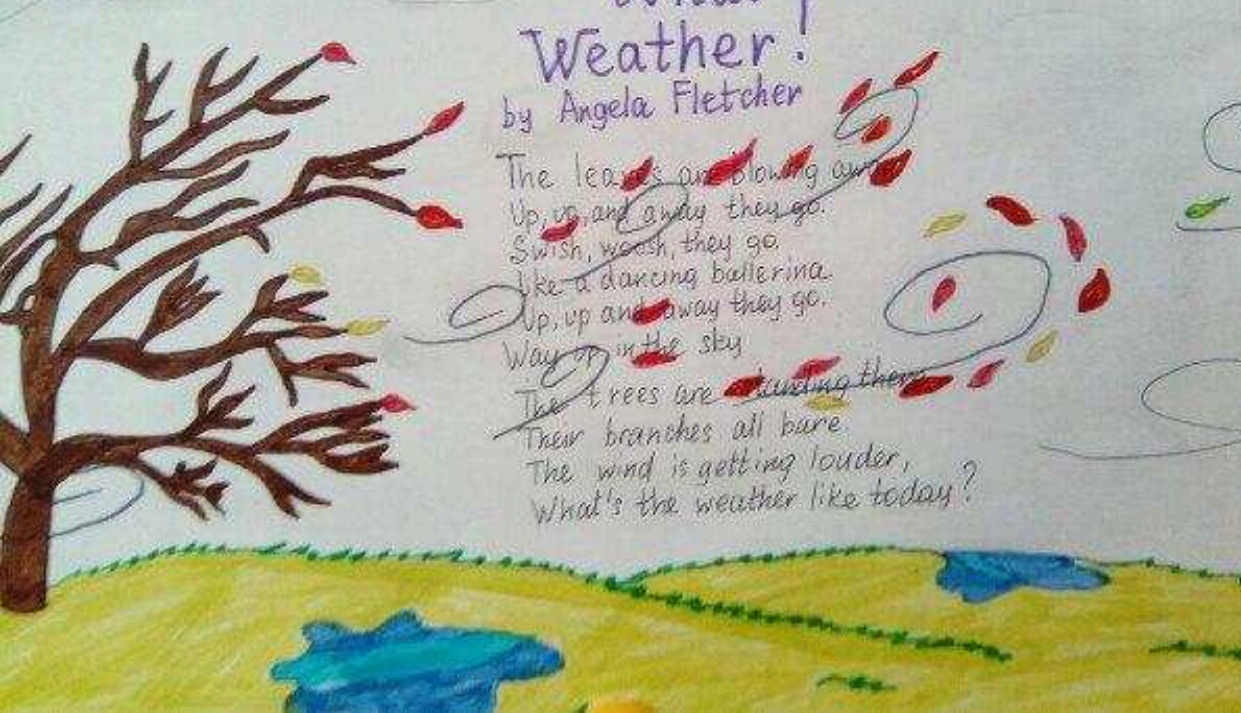 Weather!
by Angela Fletcher
The leaves are blowing away
Up, up, and away they go.
Swish, woosh, they go
Like a dancing ballerina
Up, up and away they go.
Way up in the sky
The trees are standing there
Their branches all bare
The wind is getting louder,
What's the weather like today?